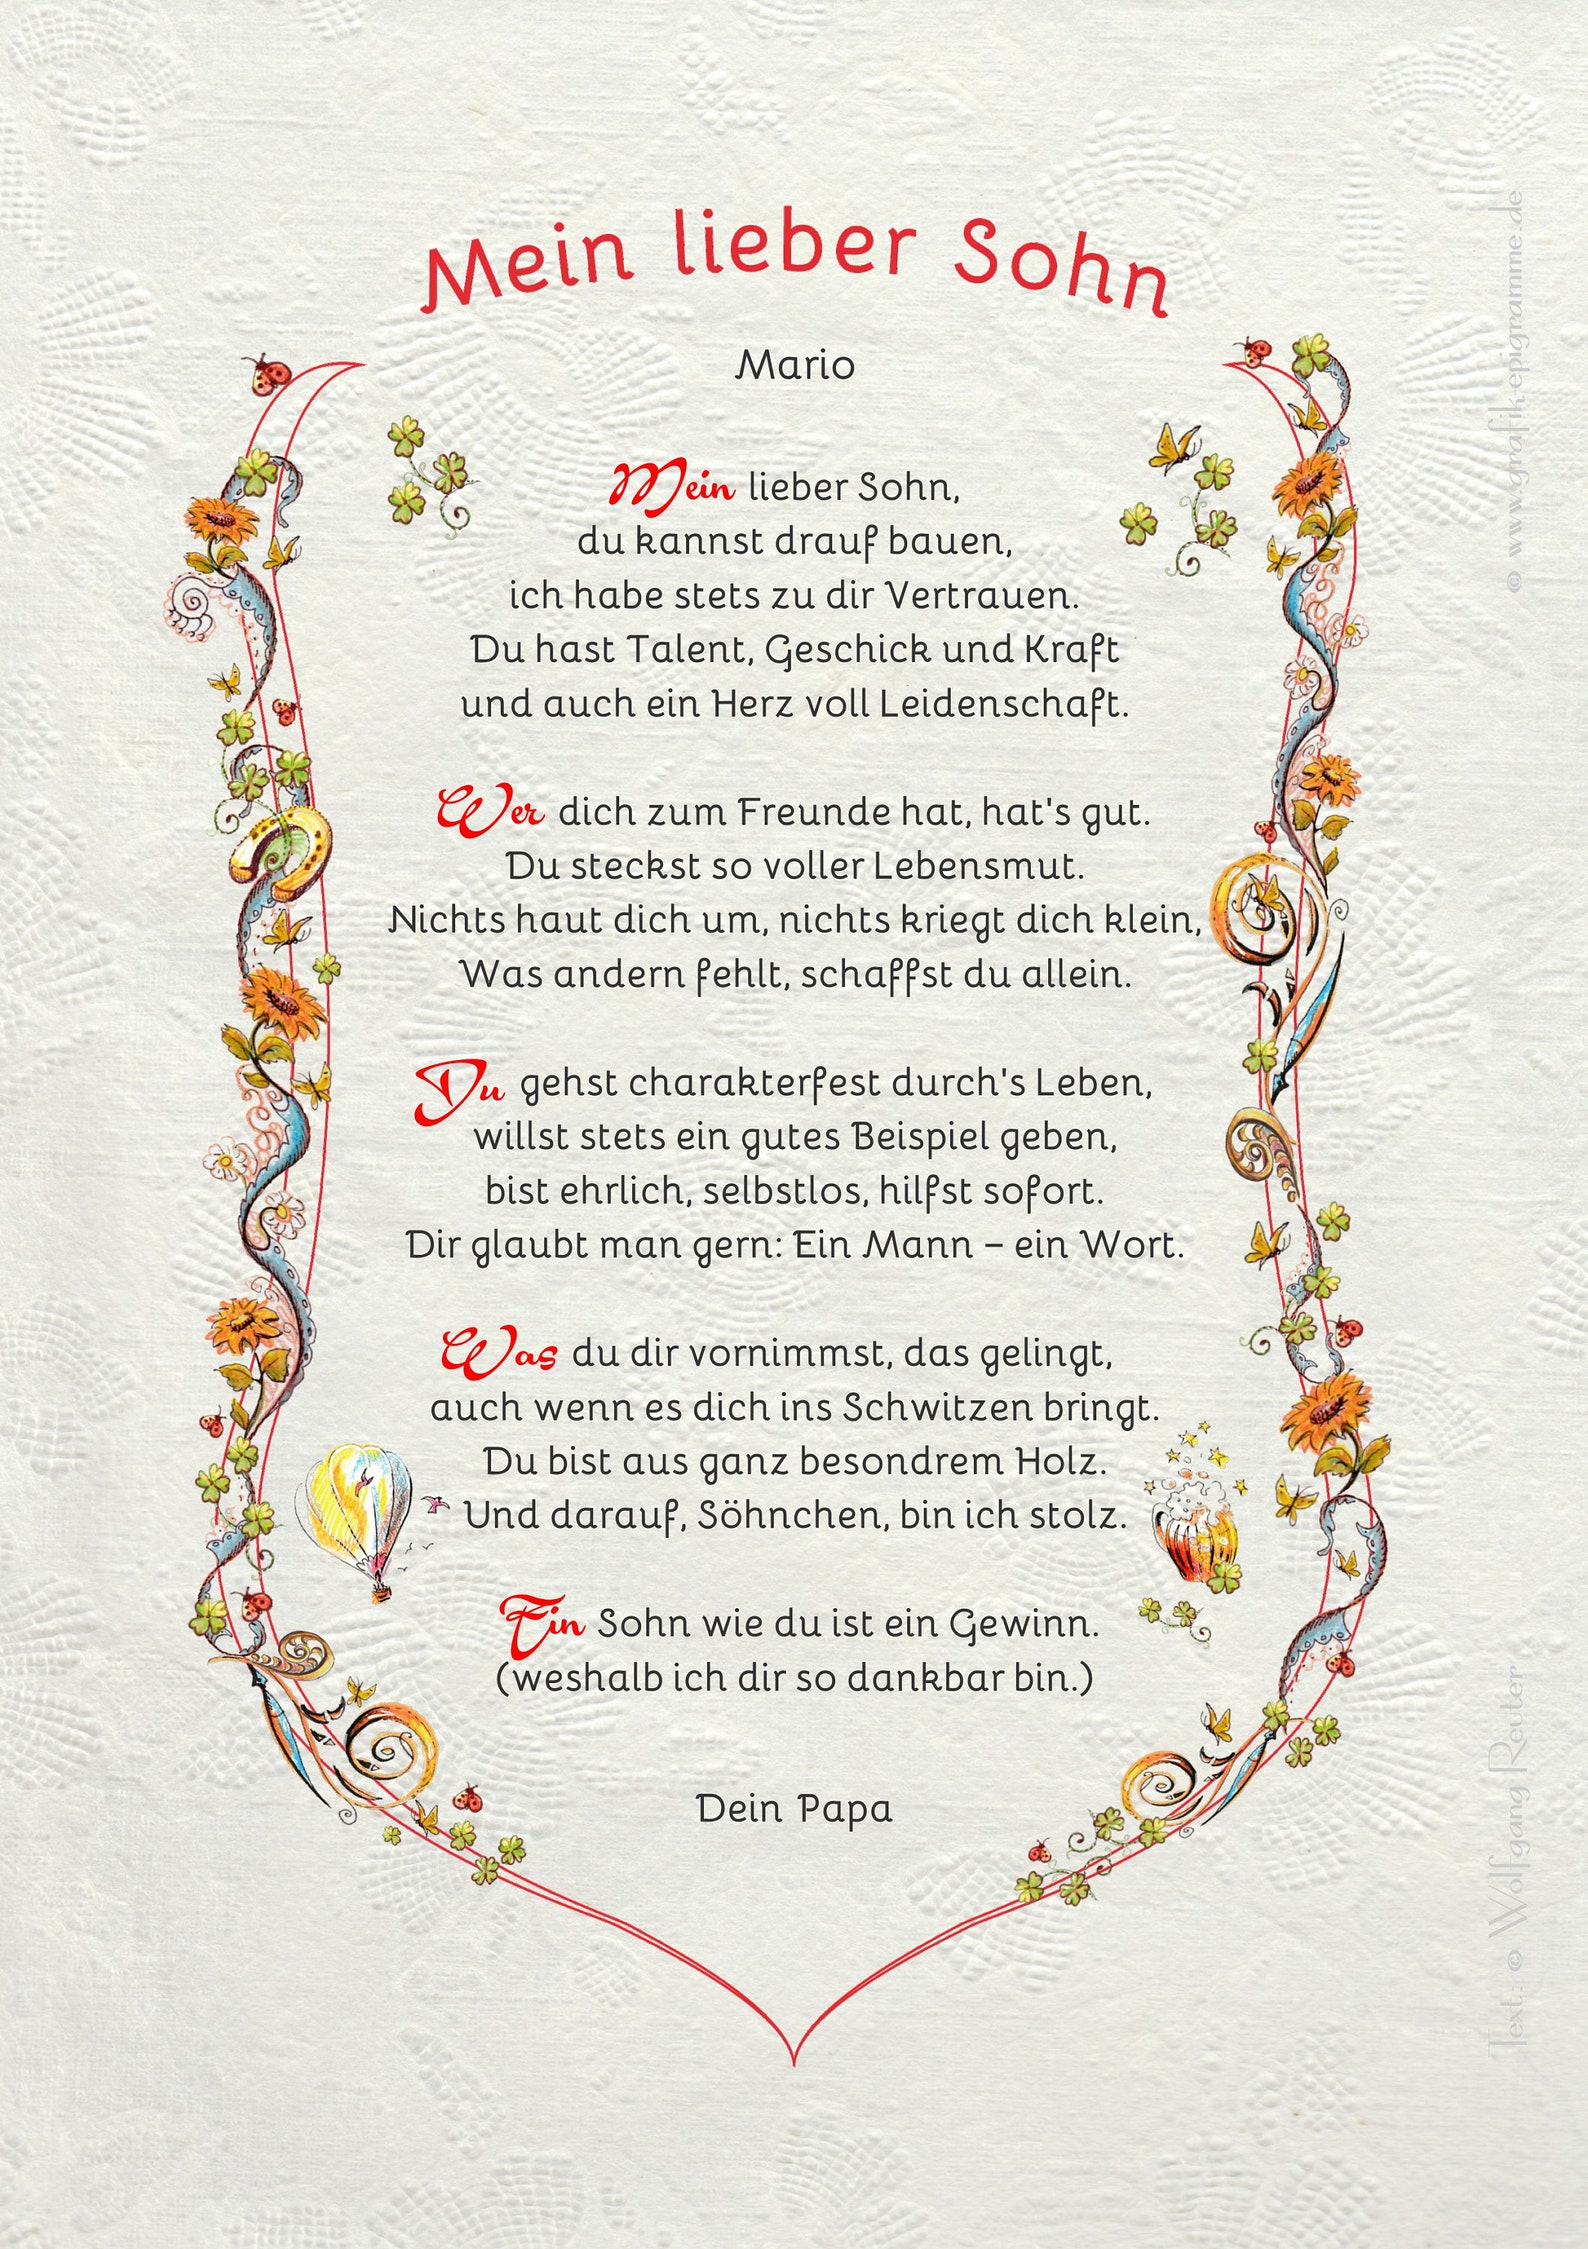 Mein lieber Sohn
Mario
Mein lieber Sohn,
du kannst drauf bauen,
ich habe stets zu dir Vertrauen.
Du hast Talent, Geschick und Kraft
und auch ein Herz voll Leidenschaft.
Wer dich zum Freunde hat, hat's gut.
Du steckst so voller Lebensmut.
Nichts haut dich um, nichts kriegt dich klein,
Was andern fehlt, schaffst du allein.
Du gehst charakterfest durch's Leben,
willst stets ein gutes Beispiel geben,
bist ehrlich, selbstlos, hilfst sofort.
Dir glaubt man gern: Ein Mann – ein Wort.
Was du dir vornimmst, das gelingt,
auch wenn es dich ins Schwitzen bringt.
Du bist aus ganz besondrem Holz.
Und darauf, Söhnchen, bin ich stolz.
Ein Sohn wie du ist ein Gewinn.
(weshalb ich dir so dankbar bin.)
Dein Papa
Text: © Wolfgang Reuter
© www.grafik-epigramme.de